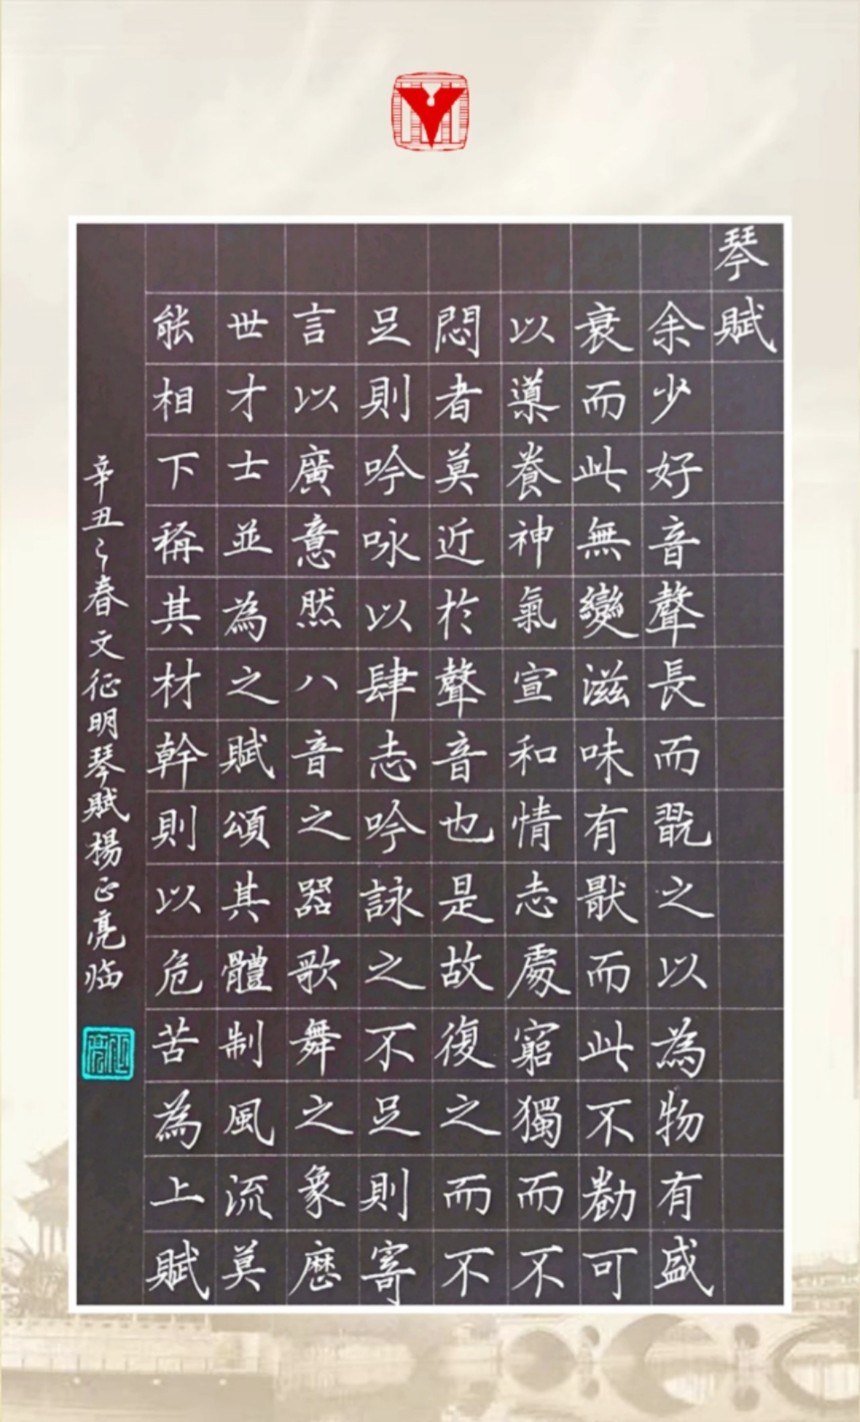 琴賦
余少好音聲長而翫之以為物有盛
衰而此無變滋味有猒而此不勌可
以導養神氣宣和情志處窮獨而不
悶者莫近於聲音也是故復之而不
足則吟咏以肆志吟詠之不足則寄
言以廣意然八音之器歌舞之象歷
世才士並為之賦頌其體制風流莫
能相下稱其材幹則以危苦為上賦
辛丑之春文征明琴賦楊正亮临